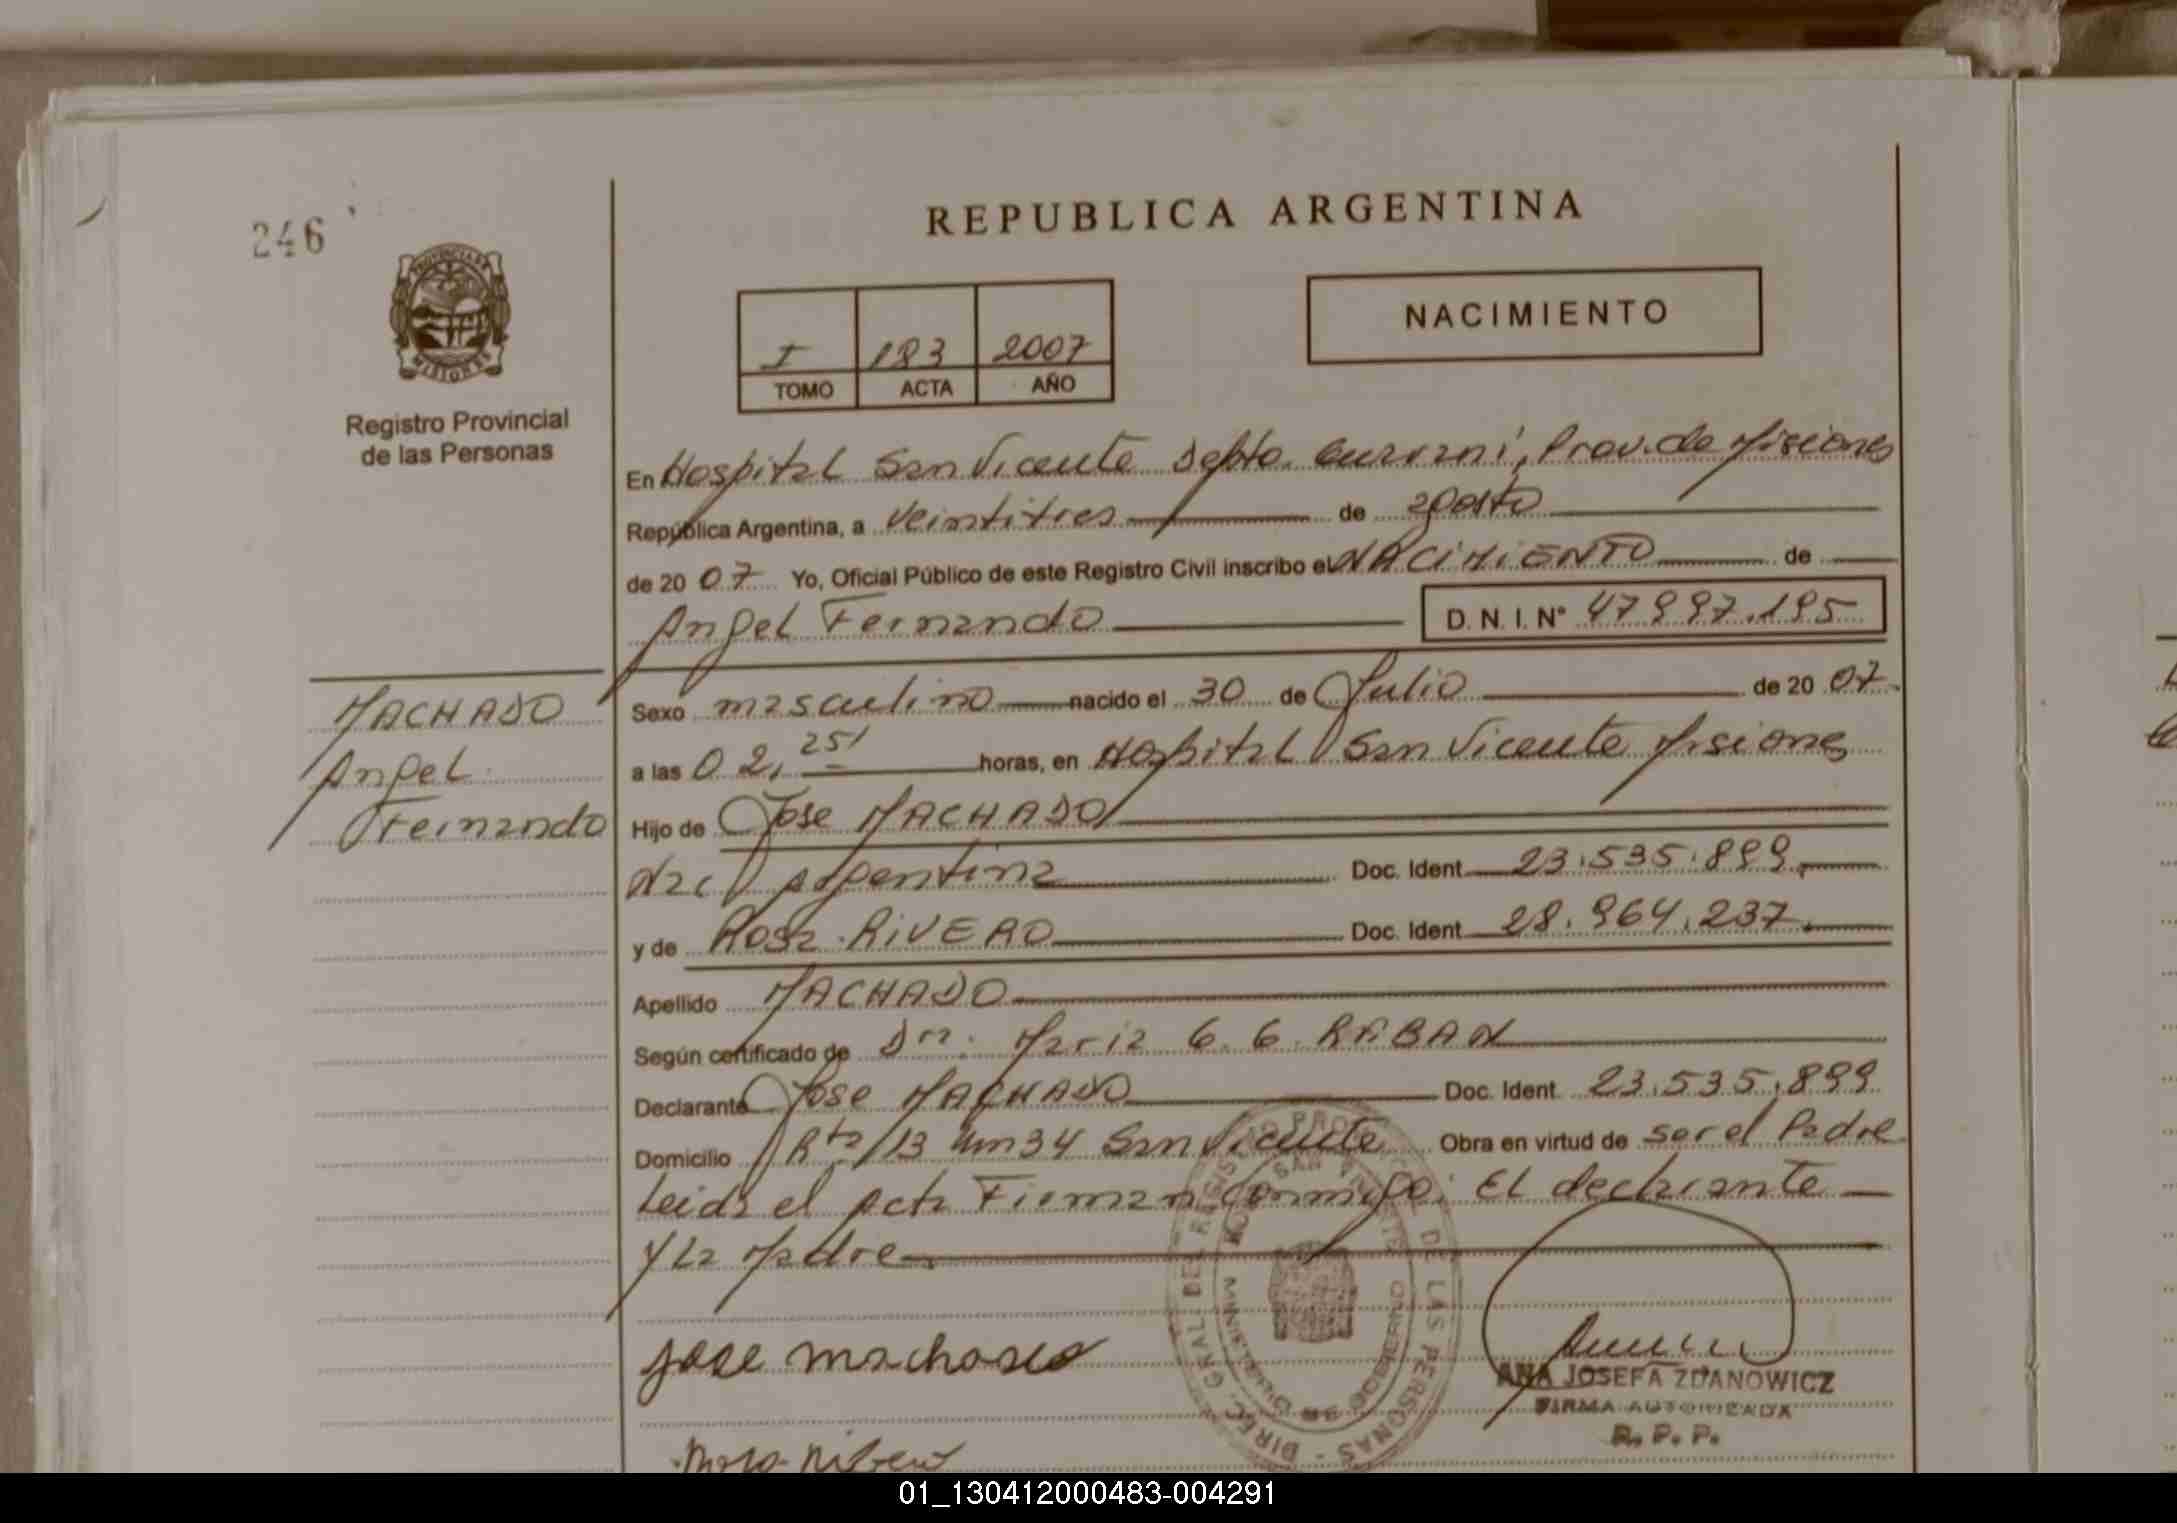 246
PROVINCIA DE
MISIONES
Registro Provincial
de las Personas
REPUBLICA ARGENTINA
I 183 2007
TOMO ACTA AÑO
NACIMIENTO
En Hospital San Vicente Depto. Guarani, Prov. de Misiones
República Argentina, a veintitres de agosto
de 20 07 Yo, Oficial Público de este Registro Civil inscribo el NACIMIENTO de
Angel Fernando D. N. I. N° 47997.195
MACHADO
Angel
Fernando
Sexo masculino nacido el 30 de Julio de 20 07
a las 02, 25' horas, en Hospital San Vicente Misiones
Hijo de Jose MACHADO
Nac Argentina Doc. Ident 23.535.899
y de Rosa RIVERO Doc. Ident 28.964.237
Apellido MACHADO
Según certificado de Dra. Maria G. G. RABAN
Declarante Jose MACHADO Doc. Ident. 23.535.899
Domicilio Rta 13 Km 34 San Vicente Obra en virtud de ser el Padre
Leida el acta Firman conmigo: El declarante
y La Madre
Jose machado
ANA JOSEFA ZDANOWICZ
FIRMA AUTORIZADA
R. P. P.
DIREC. GRAL. DEL REGISTRO PROV. DE LAS PERSONAS
01_130412000483-004291